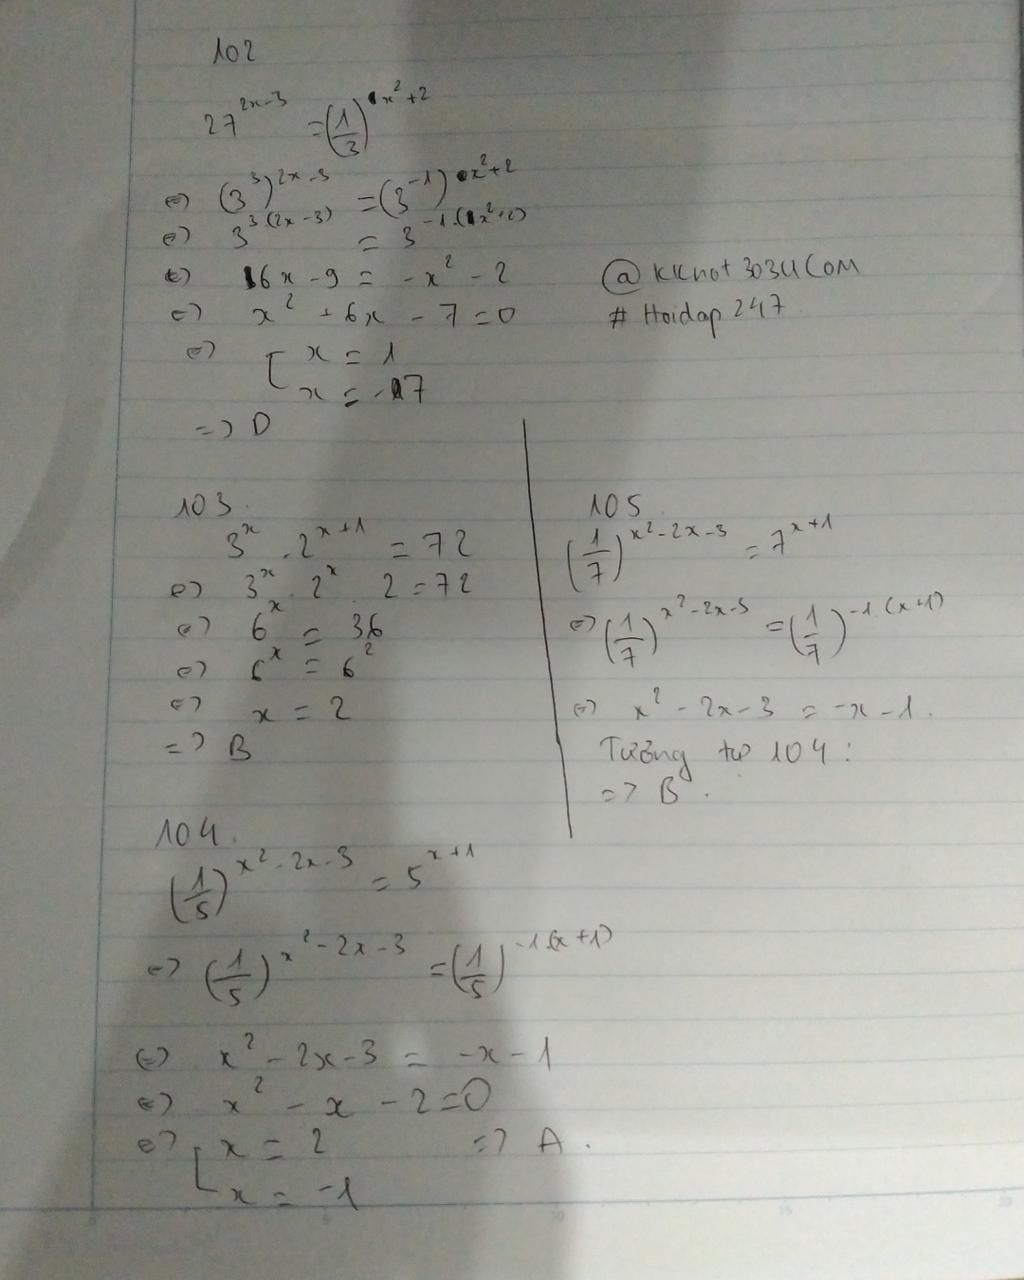 102
27^{2x-3} = (1/3)^{x²+2}
<=> (3³)^{2x-3} = (3^{-1})^{x²+2}
<=> 3^{3(2x-3)} = 3^{-1.(x²+2)}
<=> 6x - 9 = -x² - 2
<=> x² + 6x - 7 = 0
<=> [ x = 1
x = -7
=> D
@ KKnot303UCOM
# Hoidap 247
103.
3^x . 2^{x+1} = 72
<=> 3^x . 2^x . 2 = 72
<=> 6^x = 36
<=> 6^x = 6²
<=> x = 2
=> B
104.
(1/5)^{x²-2x-3} = 5^{x+1}
<=> (1/5)^{x²-2x-3} = (1/5)^{-1.(x+1)}
<=> x² - 2x - 3 = -x - 1
<=> x² - x - 2 = 0
<=> [ x = 2 => A.
x = -1
105
(1/7)^{x²-2x-3} = 7^{x+1}
<=> (1/7)^{x²-2x-3} = (1/7)^{-1.(x+1)}
<=> x² - 2x - 3 = -x - 1.
Tương tự 104 :
=> B.